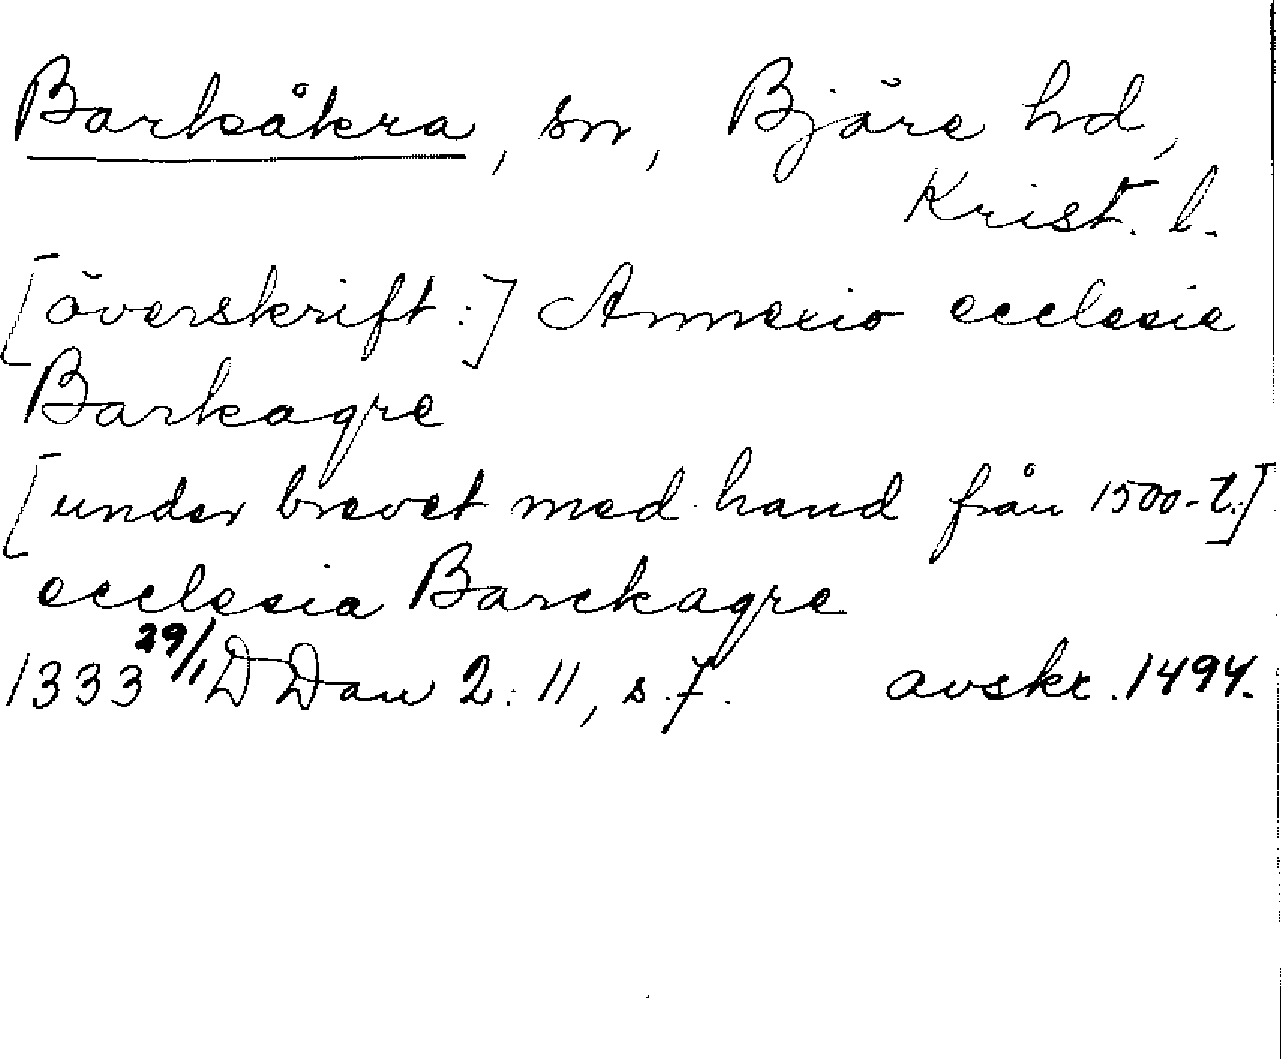 Barkåkra, sn, Bjäre hd,
Krist. l.
[överskrift:] Annexio ecclesie
Barkagre
[under brevet med hand från 1500-t.]
ecclesia Barckagre
1333 29/1 D Dan 2: 11, s. 7. avskr. 1494.